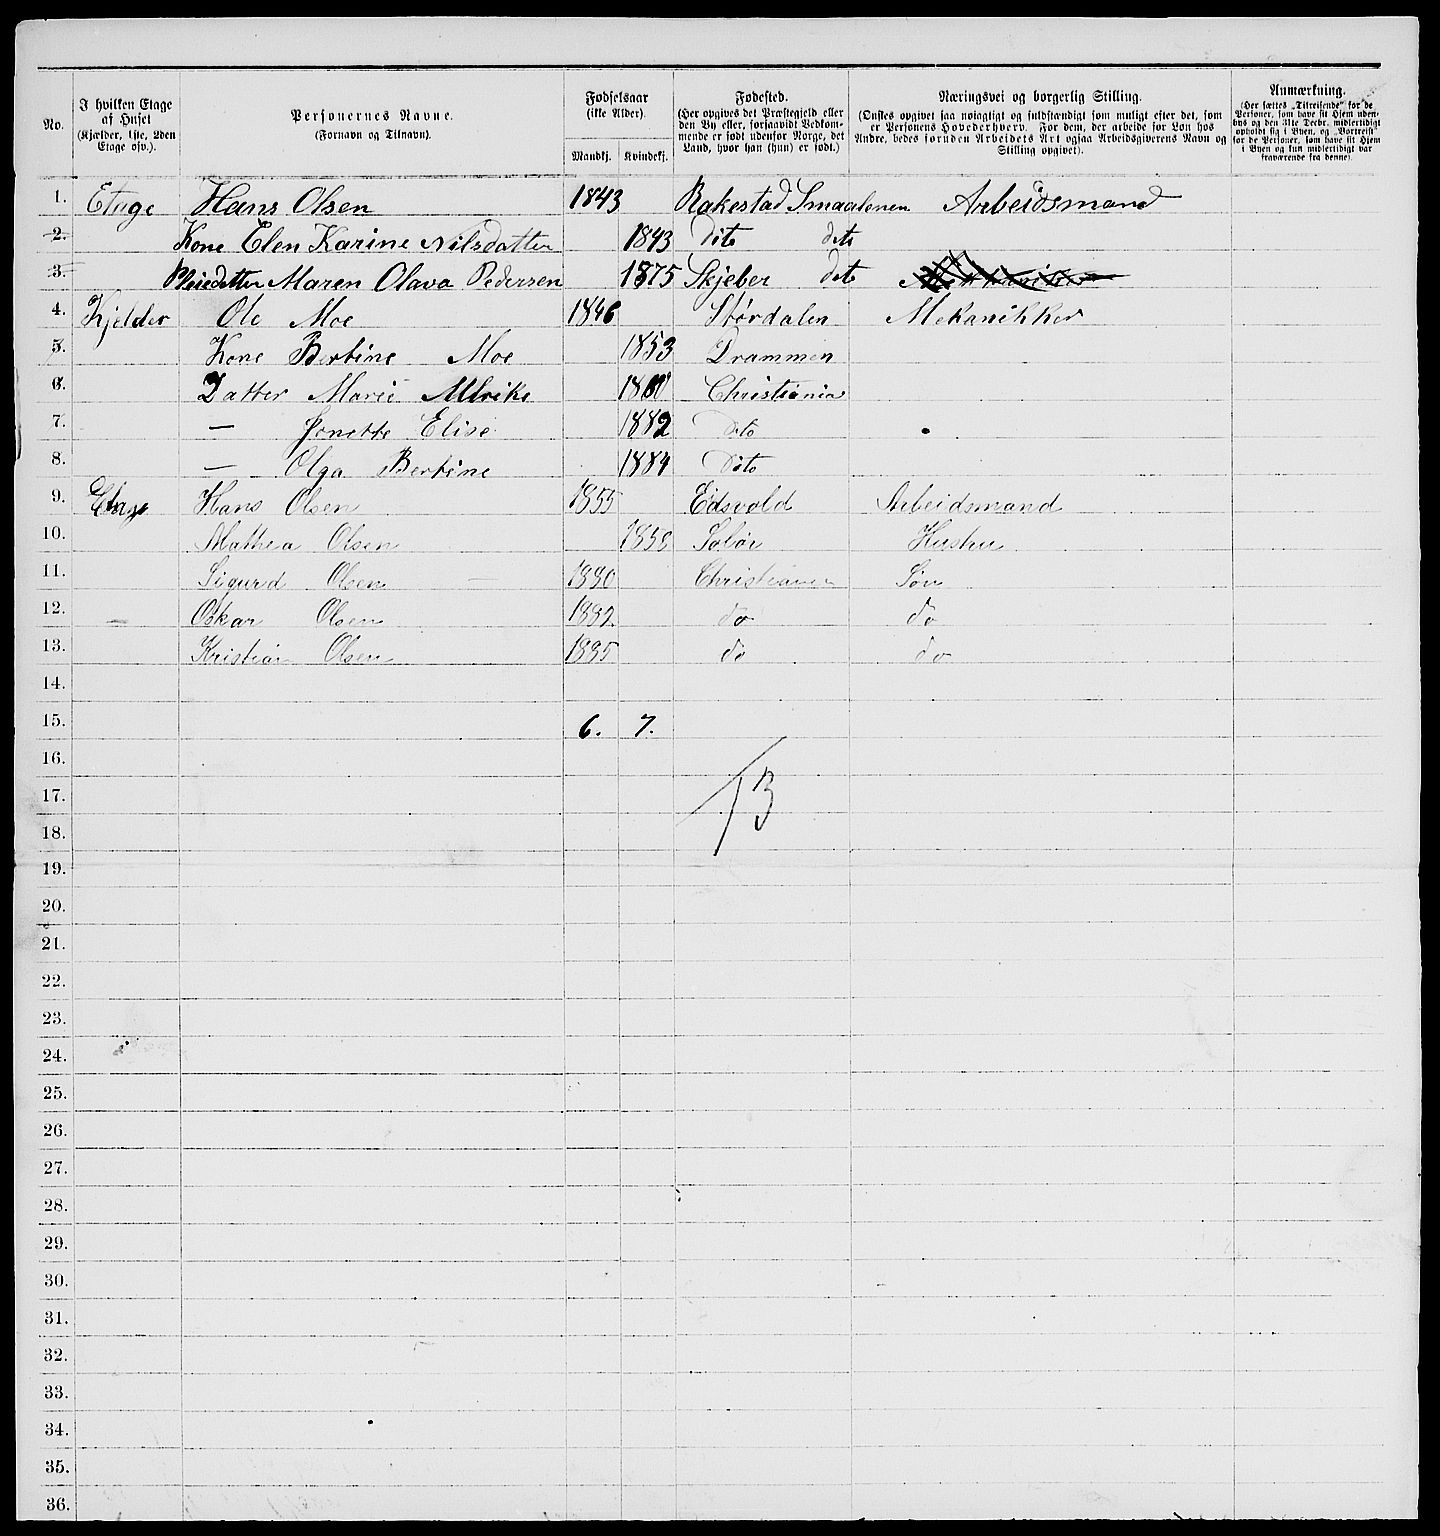 No. I hvilken Etage af Huset (Kjælder, 1ste, 2den Etage osv.). Personernes Navne. (Fornavn og Tilnavn). Fødselsaar (ikke Alder). Mandkj. Kvindekj. Fødested. (Her opgives det Præstegjeld eller den By eller, forsaavidt Vedkommende er født udenfor Norge, det Land, hvor han (hun) er født.) Næringsvei og borgerlig Stilling. (Ønskes opgivet saa nøiagtigt og fuldstændigt som muligt efter det, som er Personens Hovederhverv. For dem, der arbeide for Løn hos Andre, bedes foruden Arbeidets Art ogsaa Arbeidsgiverens Navn og Stilling opgivet). Anmærkning. (Her sættes „Tilreisende" for de Personer, som have sit Hjem udenbys og den 31te Decbr. midlertidigt opholdt sig i Byen, og „Bortreist" for de Personer, som have sit Hjem i Byen og kun midlertidigt var fraværende fra denne).
1. Etage Hans Olsen 1843 Rakestad Smaalenen Arbeidsmand
2. Kone Elen Karine Nilsdatter 1843 dito dito
3. Pleiedatter Maren Olava Pedersen 1875 Skjeber dito
4. Kjelder Ole Moe 1846 Størdalen Mekanikker
5. Kone Bertine Moe 1853 Drammen
6. Datter Marie Ulrike 1880 Christiania
7. — Jonette Elise 1882 Dito
8. — Olga Bertine 1884 Dito
9. Etage Hans Olsen 1855 Eidsvold Arbeidsmand
10. Mathea Olsen Solør Hustru
11. Sigurd Olsen — 1880 Christiania Søn
12. — Oskar Olsen 1882 do do
13. Kristian Olsen 1885 do do
14.
15. 6. 7.
16.
17. 13
18.
19.
20.
21.
22.
23.
24.
25.
26.
27.
28.
29.
30.
31.
32.
33.
34.
35.
36.